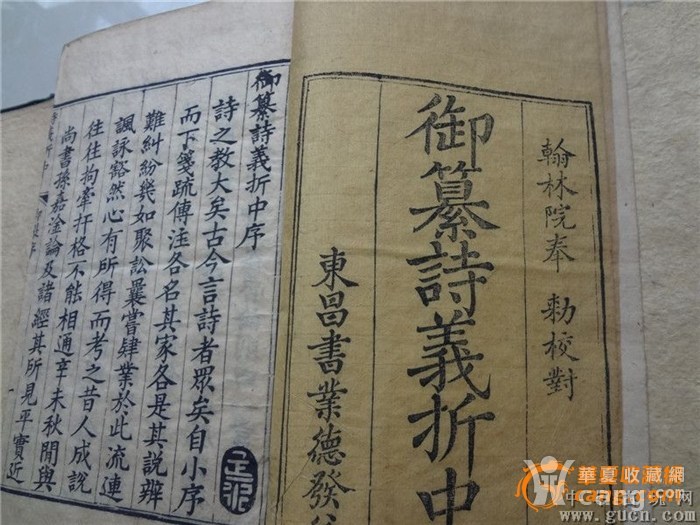 翰林院奉 勅校對
御纂詩義折中
東昌書業德發
御纂詩義折中序
詩之教大矣古今言詩者眾矣自小序
而下箋疏傳注各名其家各是其說辨
難糾紛幾如聚訟曩嘗肄業於此流連
諷詠豁然心有所得而考之昔人成說
往往拘牽扞格不能相通辛未秋間與
尚書孫嘉淦論及諸經其所見平實近
華夏收藏網
www.gucn.com